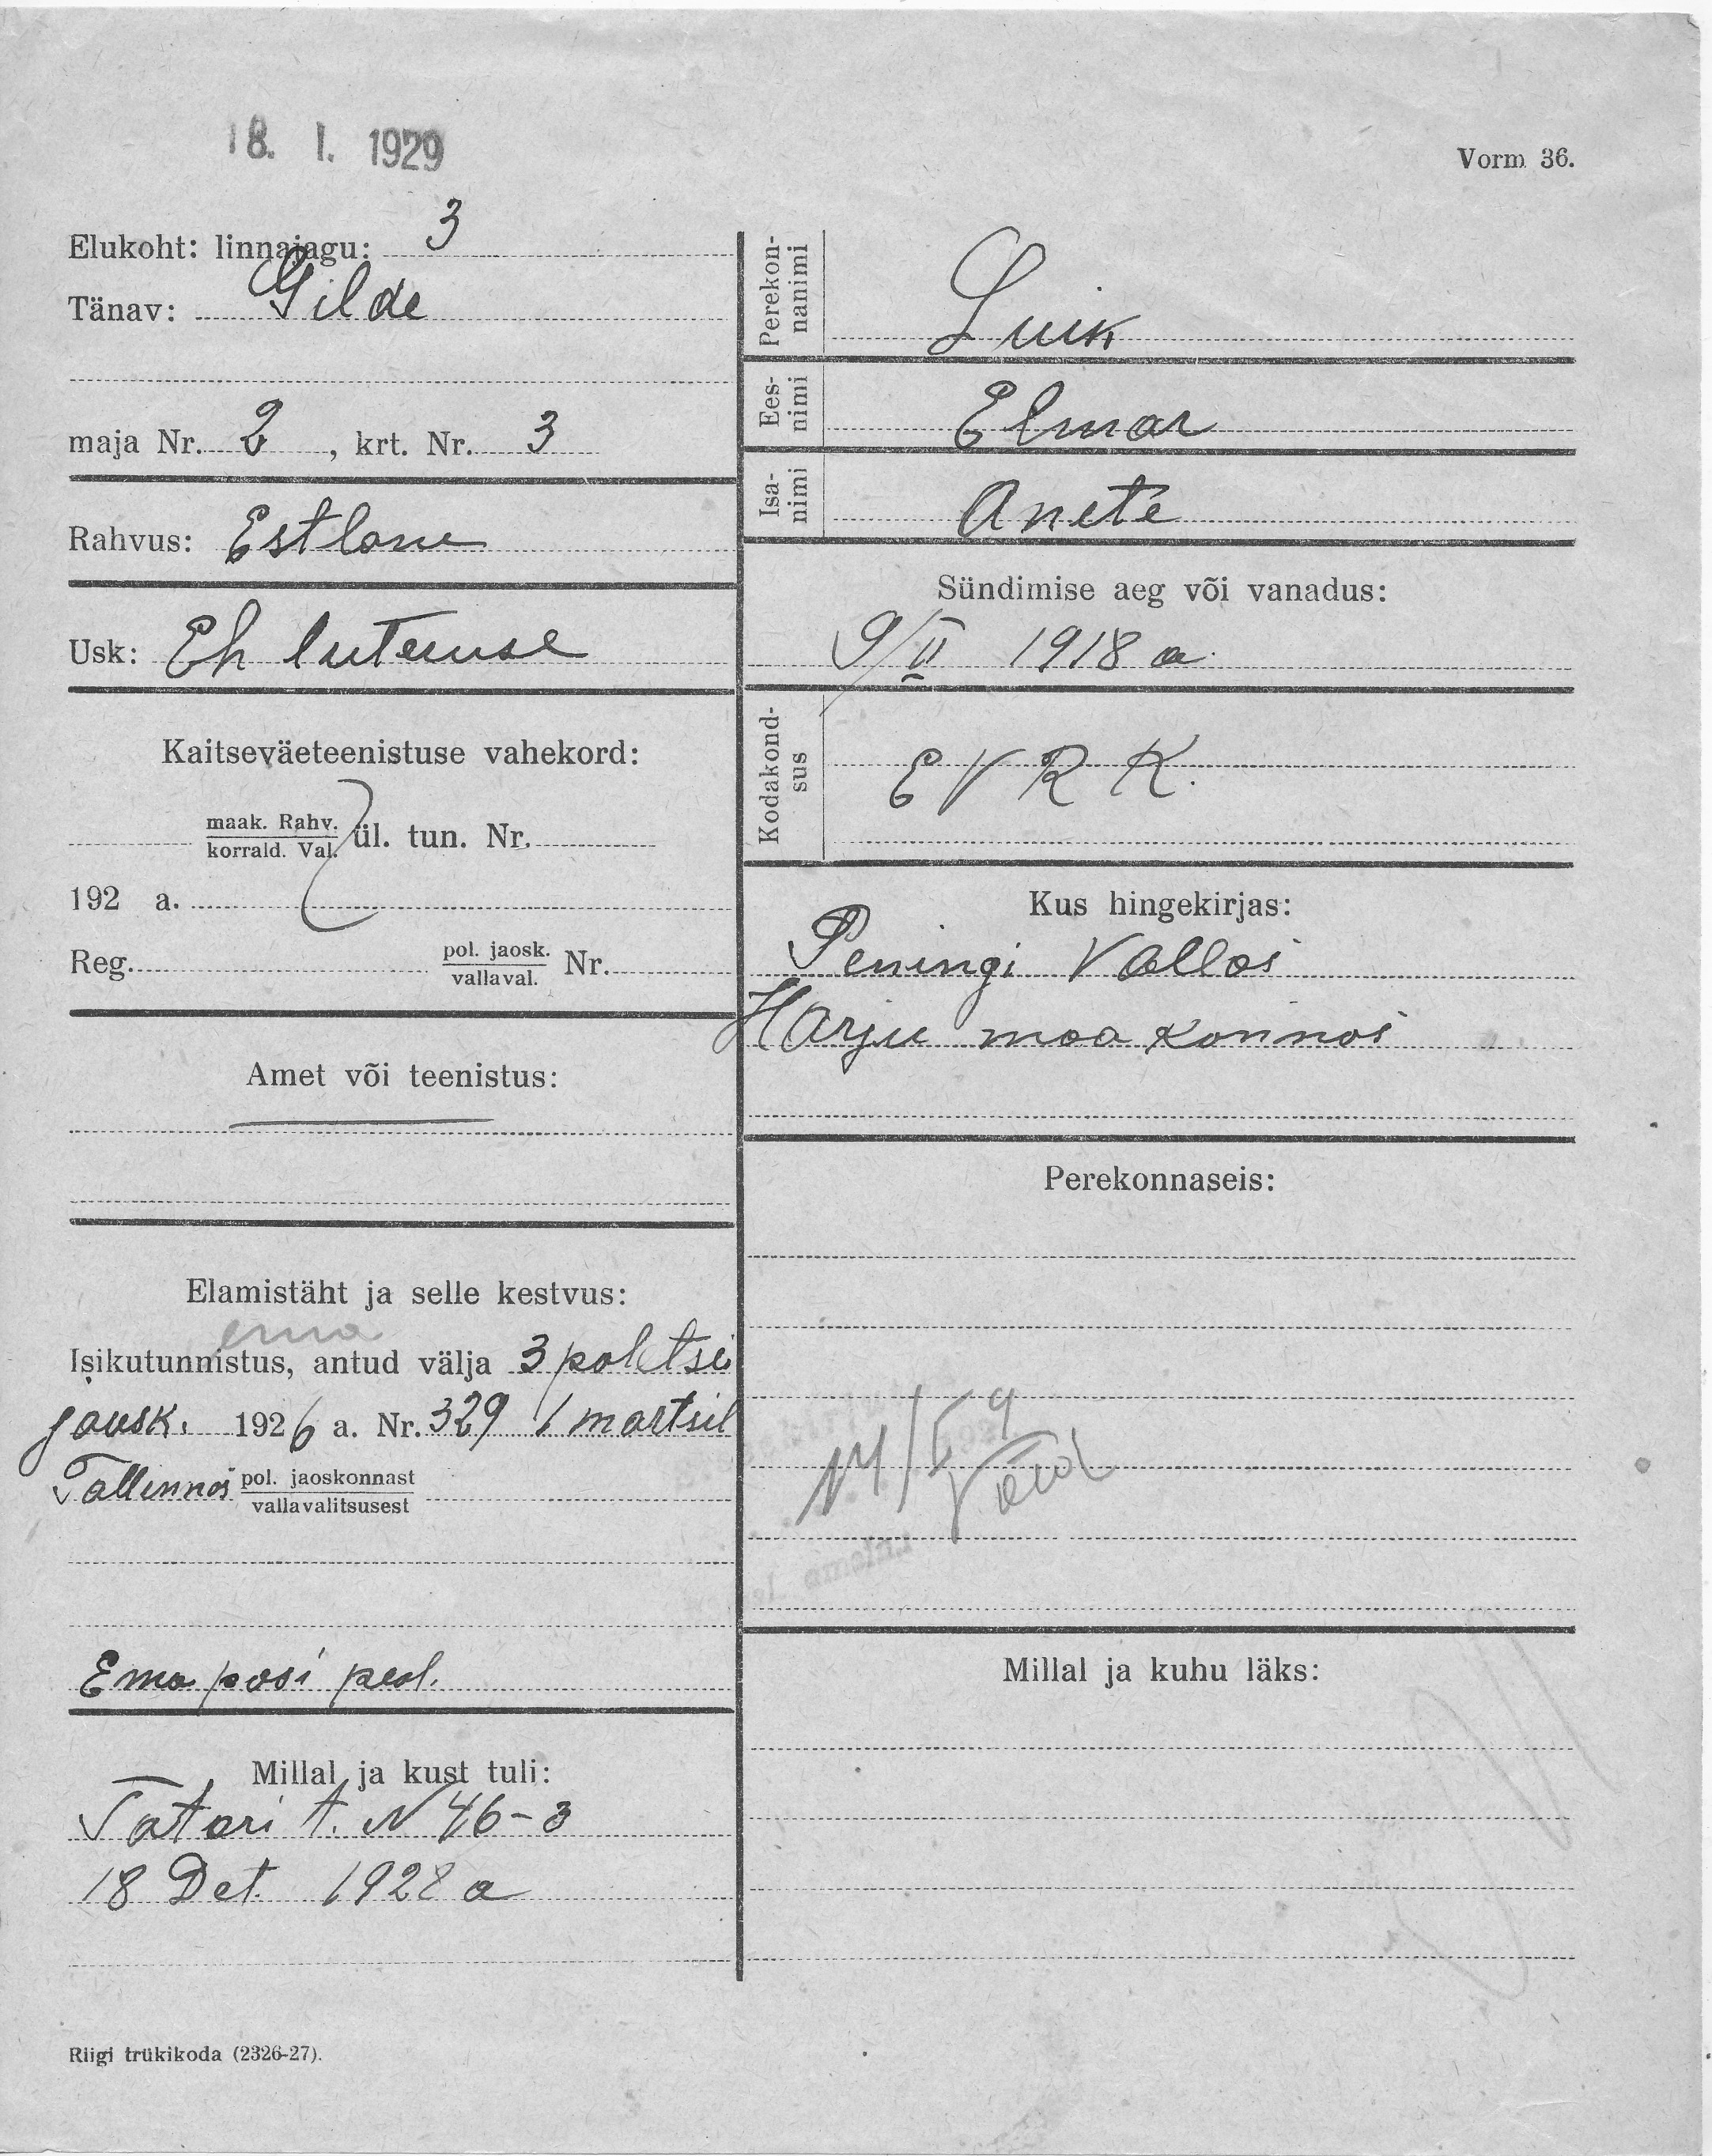 18. I. 1929
Vorm 36.
Elukoht: linnajagu: 3
Tänav: Gilde
maja Nr. 2, krt. Nr. 3
Rahvus: Estlane
Usk: Eh luteruse
Kaitseväeteenistuse vahekord:
maak. Rahv.
korrald. Val. ül. tun. Nr.
192 a.
Reg. pol. jaosk. Nr.
vallaval.
Amet või teenistus:
Elamistäht ja selle kestvus:
ema
Isikutunnistus, antud välja 3 politsei
jaosk. 1926 a. Nr. 329 1 martsil
Tallinnas pol. jaoskonnast
vallavalitsusest
Ema pasi peal.
Millal ja kust tuli:
Tatari t. N 46-3
18 Det. 1928 a
Riigi trükikoda (2326-27).
Perekon-
nanimi Luik
Ees-
nimi Elmar
Isa-
nimi Anete
Sündimise aeg või vanadus:
9/II 1918 a.
Kodakond-
sus E V R K.
Kus hingekirjas:
Peningi Vallas
Harju maa konnas
Perekonnaseis:
Millal ja kuhu läks: